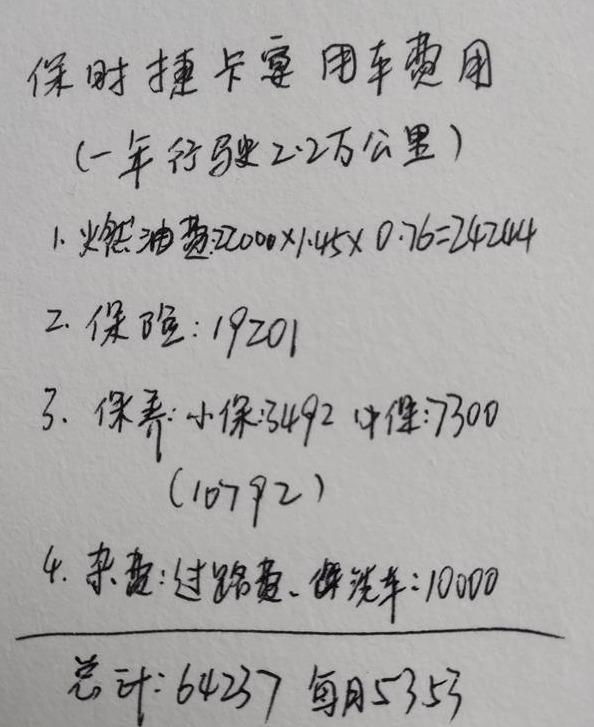 保时捷卡宴用车费用
(一年行驶2.2万公里)
1.燃油费:22000×1.45×0.76=24244
2.保险:19201
3.保养:小保:3492 中保:7300
(10792)
4.杂费:过路费、洗车:10000
总计:64237 每月5353